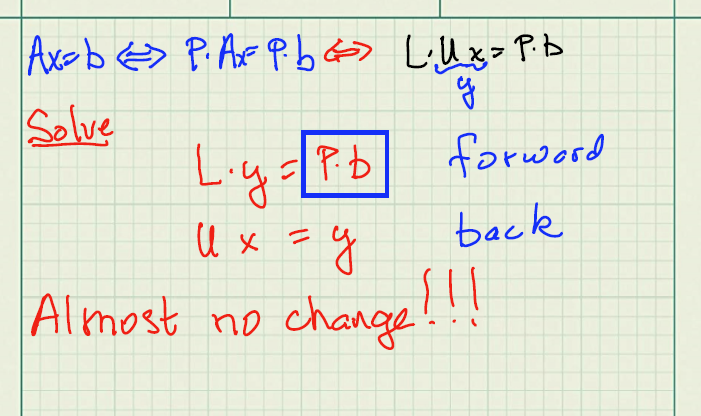 Ax=b ⇔ P·Ax=P·b ⇔ L·Ux=P·b
y
Solve
L·y=P·b forward
Ux=y back
Almost no change!!!